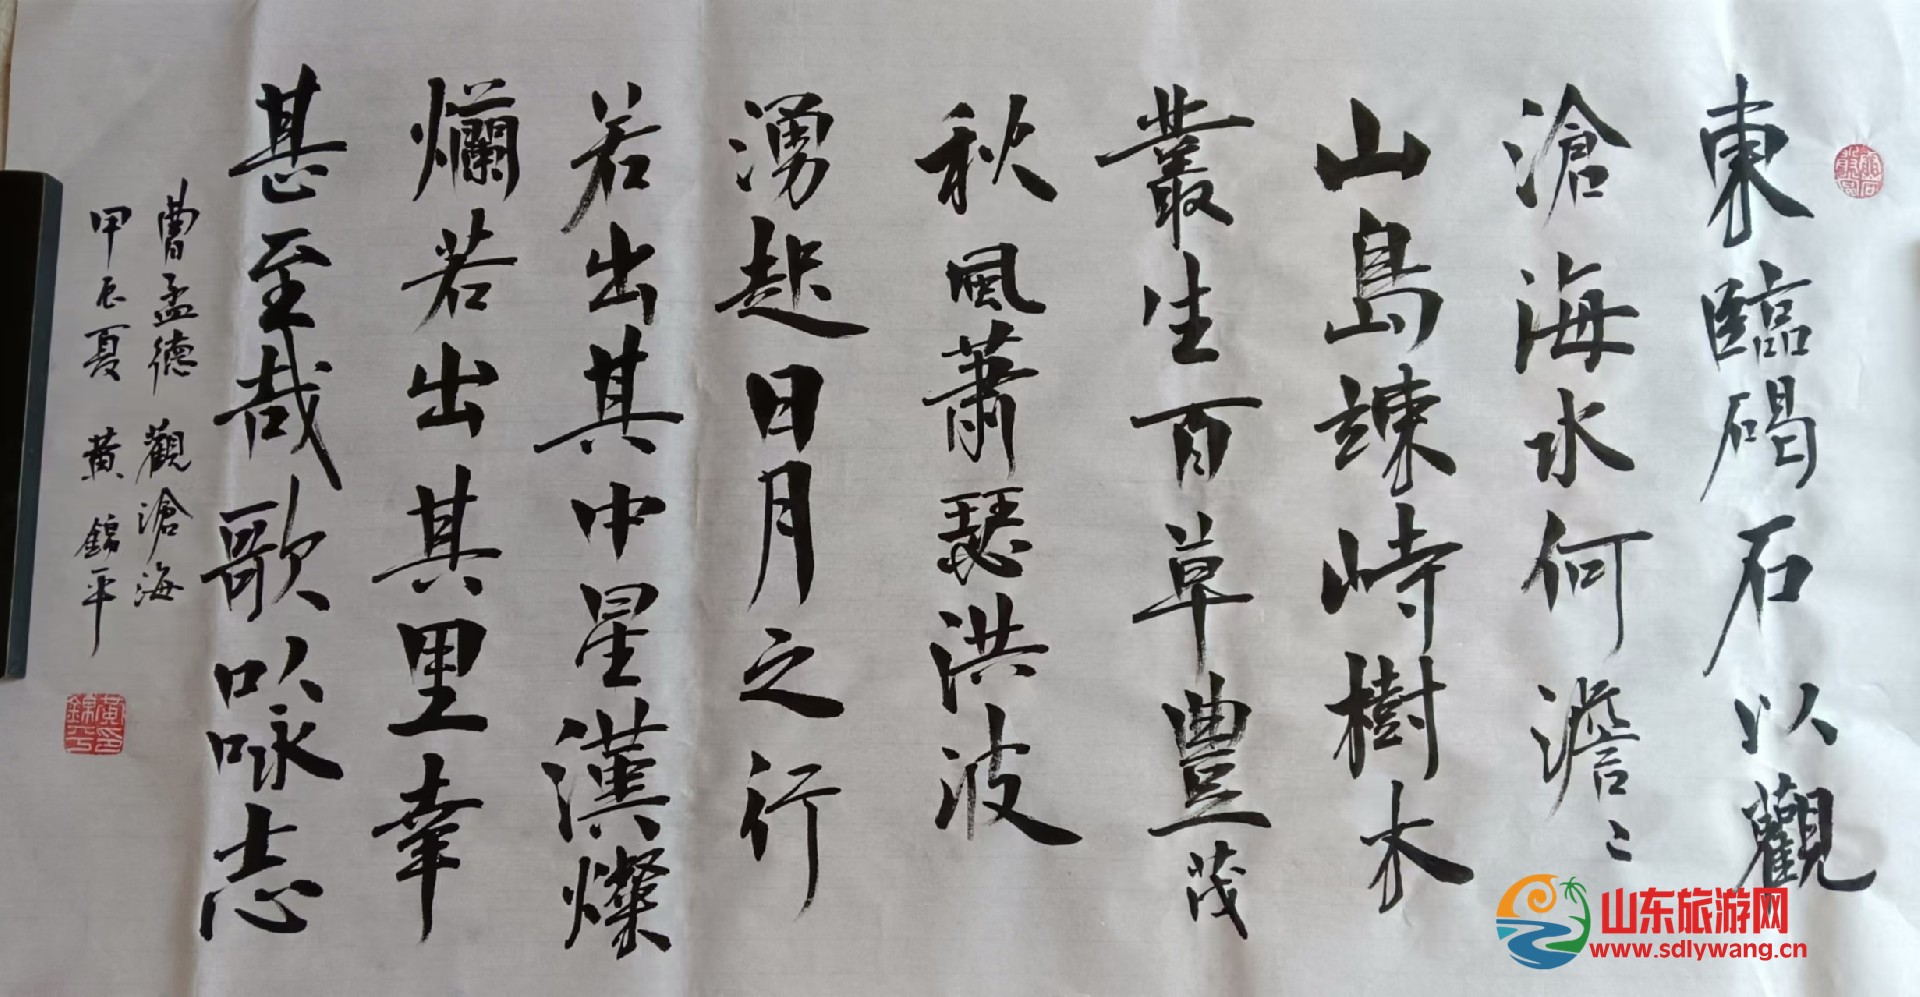 東臨碣石以觀
滄海水何澹〻
山島竦峙樹木
叢生百草豐茂
秋風蕭瑟洪波
湧起日月之行
若出其中星漢燦
爛若出其里幸
甚至哉歌以咏志
曹孟德 觀滄海
甲辰夏 黄錦平
黄錦平印
山东旅游网
www.sdlywang.cn